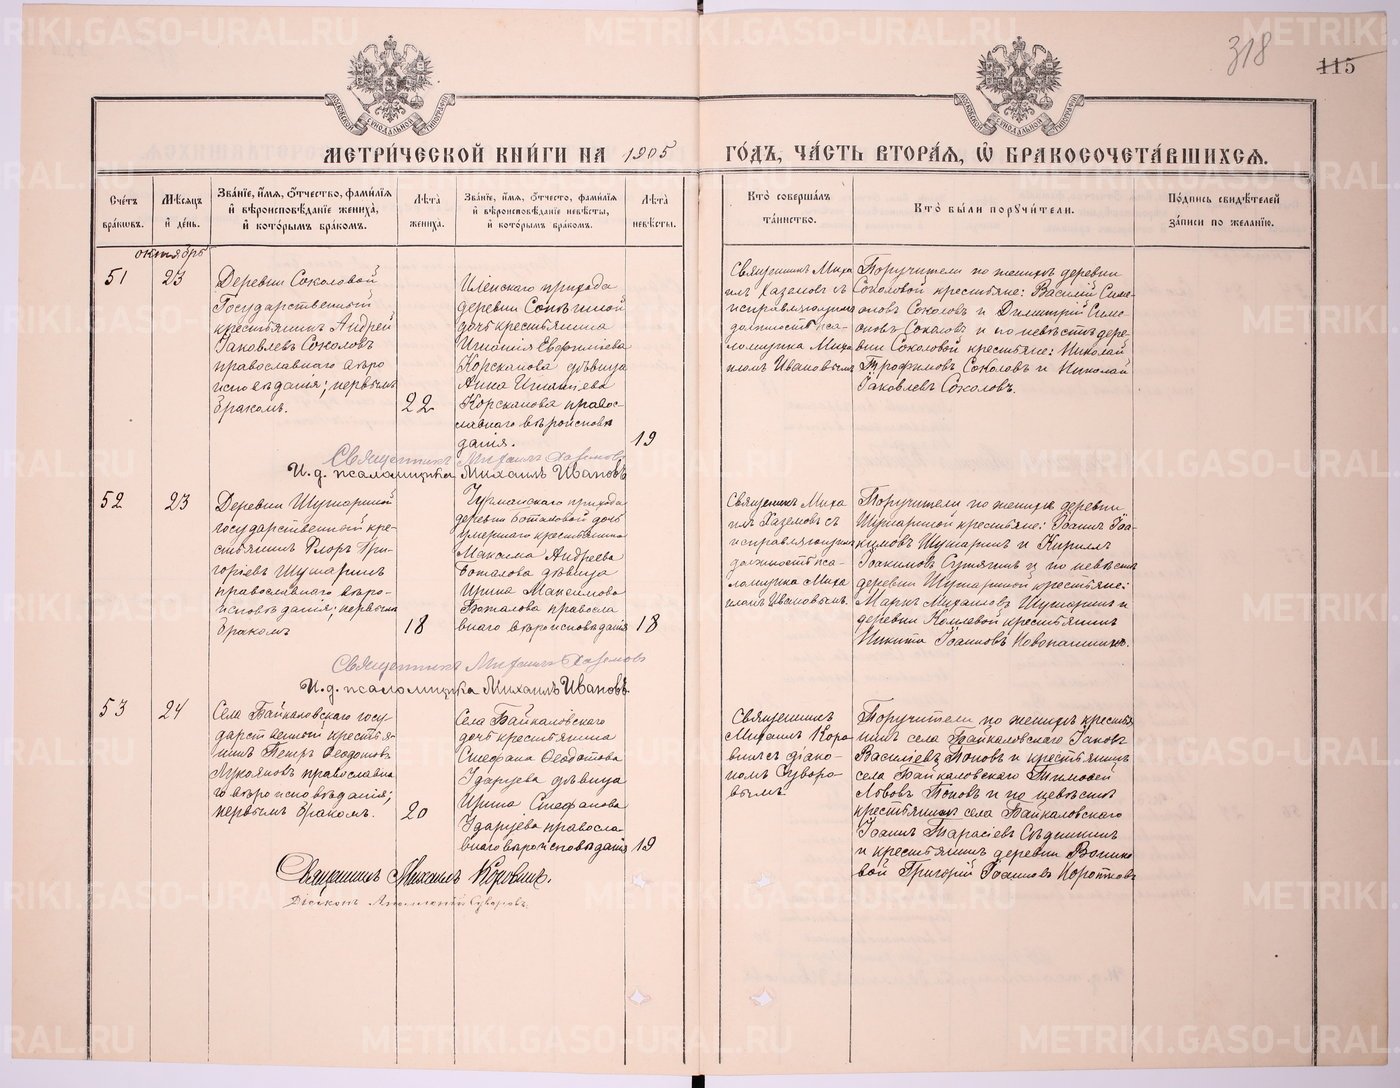 318
115
МЕТРИ́ЧЕСКОЙ КНИ́ГИ НА 1905 ГО́ДЪ, ЧА́СТЬ ВТОРА́Я, Ѡ҆ БРАКОСОЧЕТА́ВШИХСЯ.
Сче́тъ бра́кωвъ.
Мѣ́сяцъ и҆ де́нь.
Зва́нїе, и҆́мя, ѻ҆́тчество, фами́лїя
и҆ вѣроисповѣ́данїе жениха̀,
и҆ кото́рымъ бра́комъ.
Лѣ́та жениха̀.
Зва́нїе, и҆́мя, ѻ҆́тчество, фами́лїя
и҆ вѣроисповѣ́данїе невѣ́сты,
и҆ кото́рымъ бра́комъ.
Лѣ́та невѣ́сты.
Кто̀ соверша́лъ та́инство.
Кто̀ бы́ли поручи́тели.
По́дпись свидѣ́телей за́писи по жела́нїю.
октябрь
51
23
Деревни Соколовой
Государственный
крестьянинъ Андрей
Іаковлевъ Соколовъ
православнаго вѣро
исповѣданія; первымъ
бракомъ.
22
Иленскаго прихода
деревни
дочь крестьянина
Игнатія Евфиміева
Корскапова дѣвица
Анна Игнатіева
Корскапова правос-
лавнаго вѣроисповѣ
данія.
19
Священникъ Миха
илъ Хаземовъ съ
исправляющимъ
должность пса-
ломщика Миха
иломъ Ивановымъ
Поручители по женихѣ деревни
Соколовой крестьяне: Василій Симе-
оновъ Соколовъ и Димитрій Симе
оновъ Соколовъ и по невѣстѣ дере
вни Соколовой крестьяне: Николай
Трофимовъ Соколовъ и Николай
Іаковлевъ Соколовъ.
Священникъ Михаилъ Хаземовъ
И. д. псаломщика Михаилъ Ивановъ
52
23
Деревни Шушариной
государственный кре-
стьянинъ Флоръ Гри-
горіевъ Шушаринъ
православнаго вѣро-
исповѣданія; первымъ
бракомъ
18
прихода
деревни Боталовой дочь
умершаго крестьянина
Максима Андреева
Боталова дѣвица
Ирина Максимова
Боталова правосла
внаго вѣроисповѣданія
18
Священникъ Миха
илъ Хаземовъ съ
исправляющимъ
должность пса-
ломщика Миха
иломъ Ивановымъ.
Поручители по женихѣ деревни
Шушариной крестьяне: Іоаннъ Іоа-
кимовъ Шушаринъ и Кириллъ
Іоакимовъ и по невѣстѣ
деревни Шушариной крестьяне:
Маркъ Михаиловъ Шушаринъ и
деревни крестьянинъ
Никита Іоанновъ Новопашинъ.
Священникъ Михаилъ Хаземовъ
И. д. псаломщика Михаилъ Ивановъ.
53
24
Села Байкаловскаго госу-
дарственный крестья-
нинъ Петръ Ѳеодоровъ
Лукояновъ православна
го вѣроисповѣданія;
первымъ бракомъ.
20
Села Байкаловскаго
дочь крестьянина
Стефана Ѳедотова
Ударцева дѣвица
Ирина Стефанова
Ударцева правосла
внаго вѣроисповѣданія
19
Священникъ
Михаилъ Коро
винъ съ діако-
номъ Суворо
вымъ
Поручители по женихѣ крестья
нинъ села Байкаловскаго Іаковъ
Василіевъ Поповъ и крестьянинъ
села Байкаловскаго Тимоѳей
Львовъ Поповъ и по невѣстѣ
крестьянинъ села Байкаловскаго
Іоаннъ Тарасіевъ
и крестьянинъ деревни
вой Григорій Іоанновъ Коротковъ
Священникъ Михаилъ Коровинъ.
Діаконъ Аполлоній Суворовъ.
METRIKI.GASO-URAL.RU